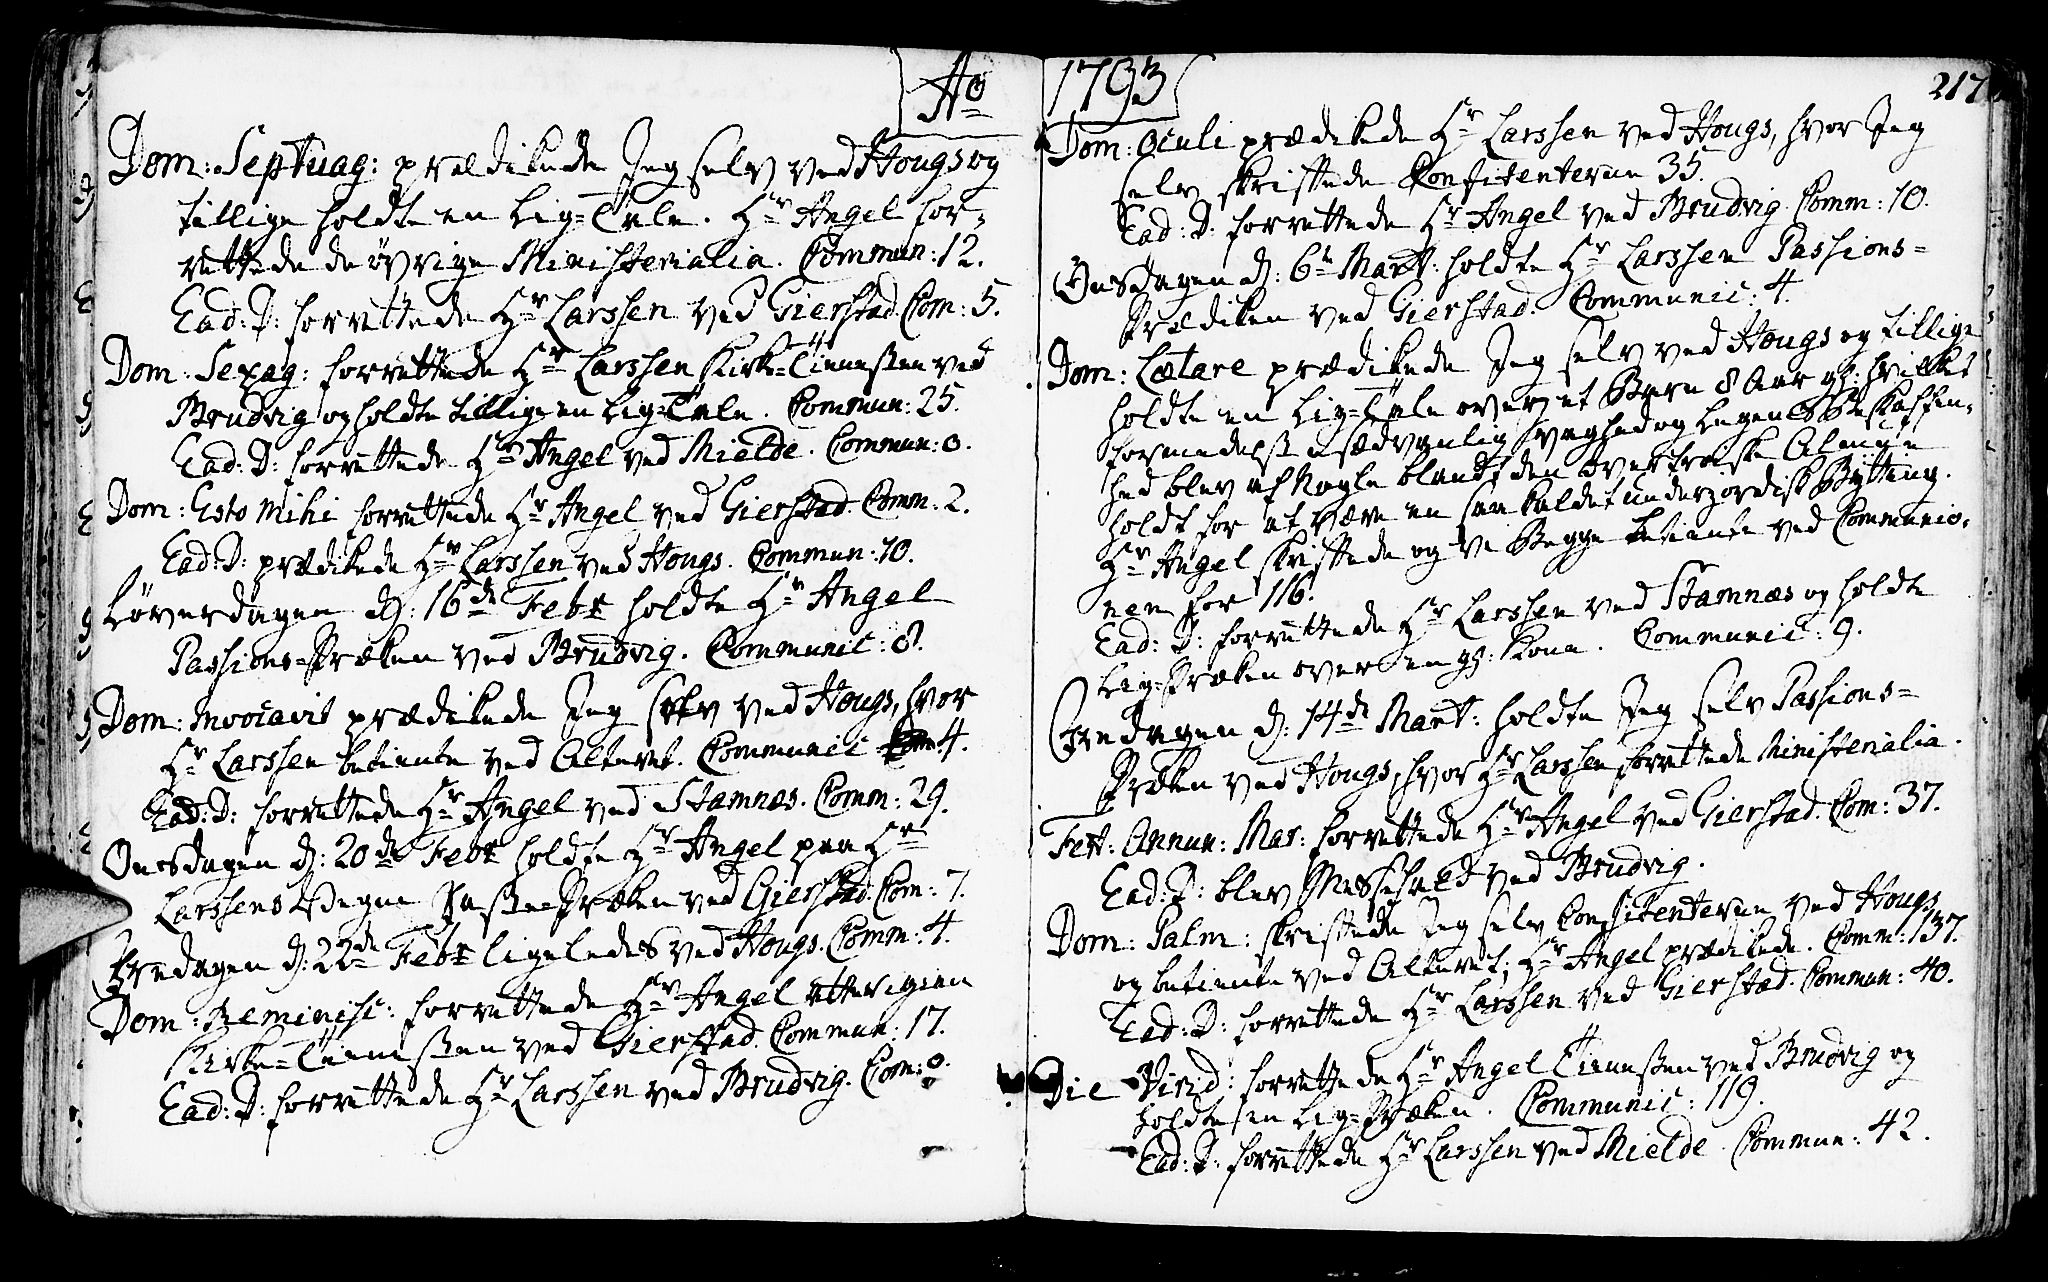 Ao
Dom: Septuag: prædikede Jeg selv ved Hougs og
tillige holdte en Lig-Tale. Hr Angel for-
rettede de øvrige Ministerialia. Commun: 12.
Ead: D: forrettede Hr Larssen ved Gierstad. Com: 5.
Dom. Sexag: forrettede Hr Larssen Kirke-Tienesten ved
Brudvig og holdte tillige en Lig-Tale. Commun: 25.
Ead: D: forrettede Hr Angel ved Mielde. Commun: 0.
Dom: Esto Mihi forrettede Hr Angel ved Gierstad. Comm: 2.
Ead: D: prædikede Hr Larssen ved Hougs. Commun: 10.
Løverdagen d: 16de Febr holdte Hr Angel
Passions-Præken ved Brudvig. Communic: 8.
Dom: Invocavit prædikede Jeg selv ved Hougs, hvor
Hr Larssen betiente ved Alteret. Communic 4.
Ead: D: forrettede Hr Angel ved Stamnes. Comm: 29.
Onsdagen d: 20de Febr holdte Hr Angel paa Hr
Larssens Vegne Passe-Præken ved Gierstad. Com: 7.
Fredagen d: 22de Febr ligeledes ved Hougs. Comm: 4.
Dom: Reminisc: forrettede Hr Angel
Kirke-Tienesten ved Gierstad. Commun: 17.
Ead: D: forrettede Hr Larssen ved Brudvig. Com: 0.
1793
217
Dom: Oculi prædikede Hr Larssen ved Hougs, hvor Jeg
selv skriftede Confitenterne 35.
Ead: D: forrettede Hr Angel ved Brudvig. Comm: 10.
Onsdagen d: 6te Mart: holdte Hr Larssen Passions-
Prædiken ved Gierstad. Communic: 4.
Dom: Lætare prædikede Jeg selv ved Hougs og tillige
holdte en Lig-Tale over et Barn 8 Aar gl: hvilket
formedelst usædvanlig svaghed og Legems Beskaffen-
hed blev af Nogle blandt den overtroiske Almue
holdt for at være en saa kaldet underjordisk Bytting.
Hr Angel skriftede og Vi Begge betiente ved Communio-
nen for 116.
Ead: D: forrettede Hr Larssen ved Stamnæs og holdte
Lig-Præken over en gl: Kone. Communic: 9.
Fredagen d: 14de Mart: holdte Jeg selv Passions-
Præken ved Hougs, hvor Hr Larssen forrettede Ministerialia.
Fest: Annun: Mar: forrettede Hr Angel ved Gierstad. Com: 37.
Ead: D: blev Messefald ved Brudvig.
Dom: Palm: skriftede Jeg selv Confitenterne ved Hougs
og betiente ved Alteret; Hr Angel prædikede. Comm: 137.
Ead: D: forrettede Hr Larssen ved Gierstad. Commun: 40.
Die Virid: forrettede Hr Angel Tienesten ved Brudvig og
holdte en Lig-Præken. Communic: 119.
Ead: D: forrettede Hr Larssen ved Mielde. Commun: 42.